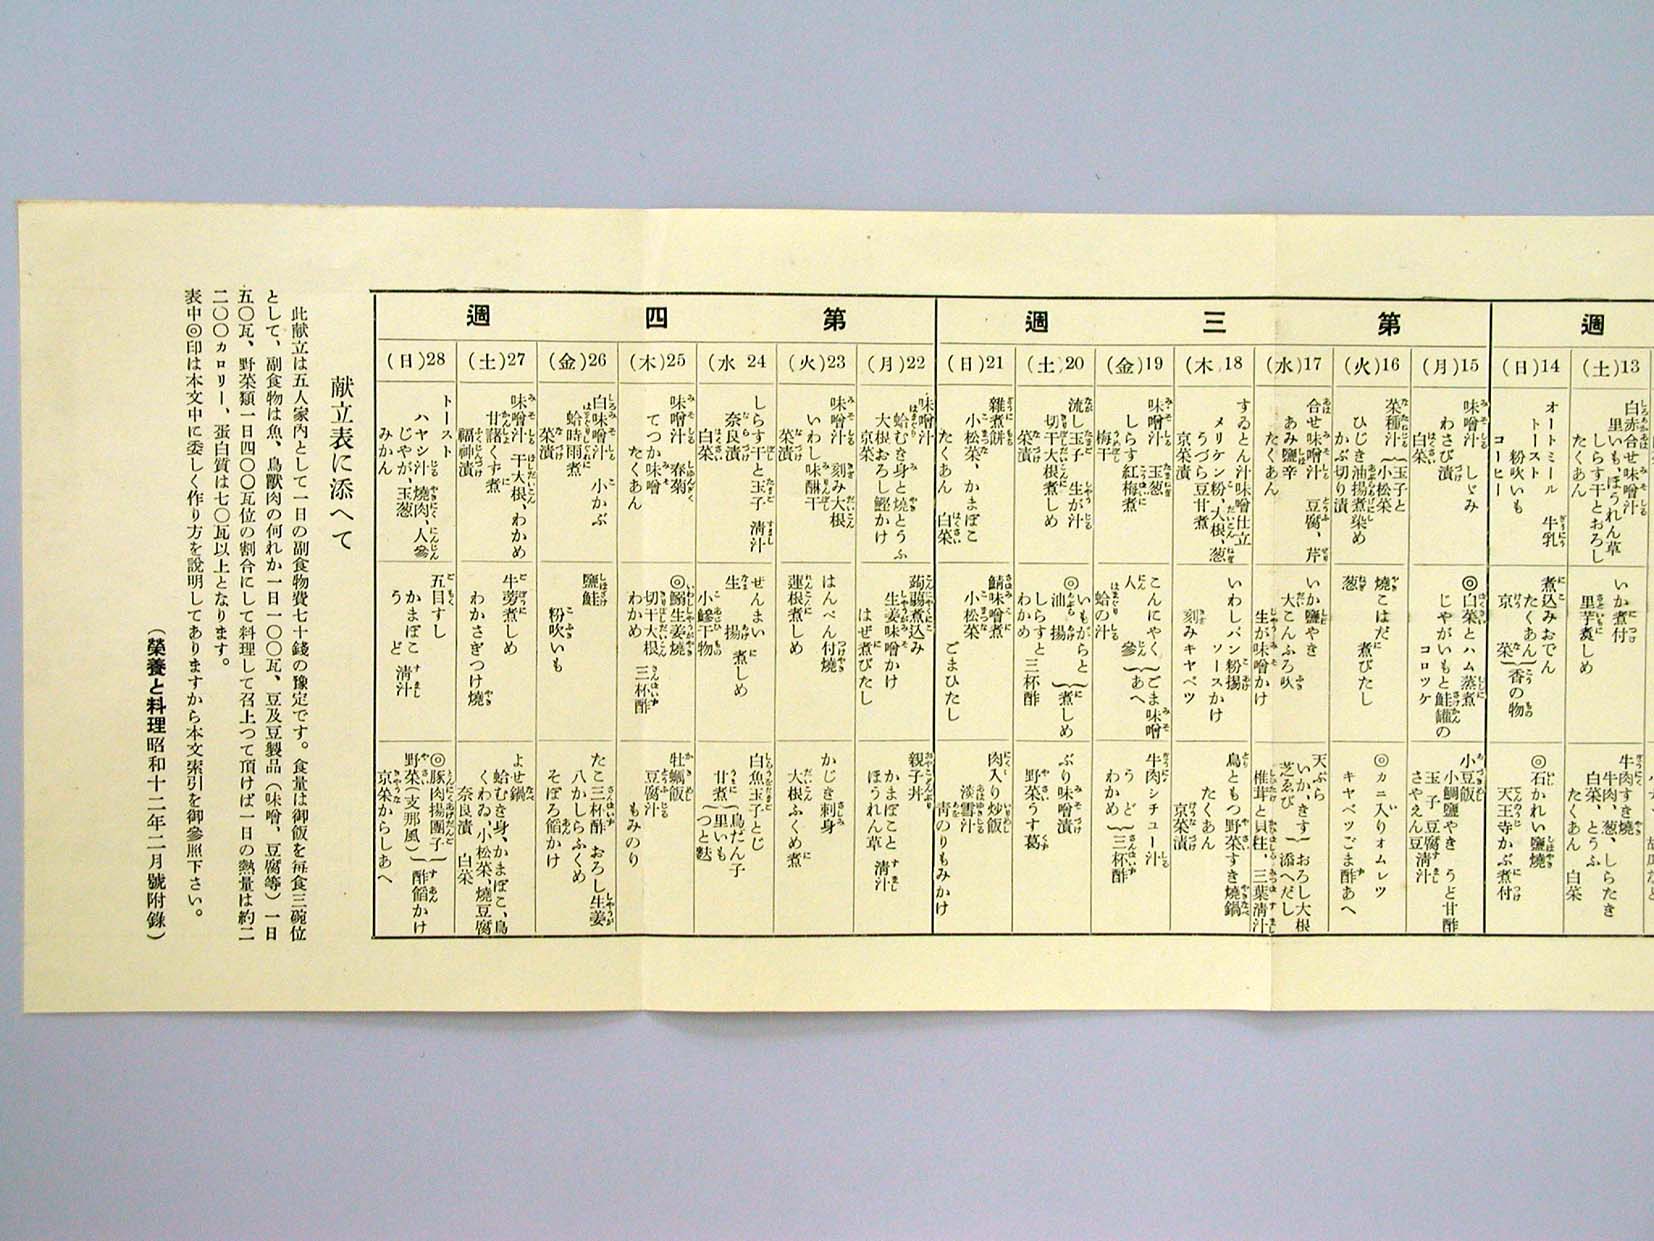 第三週
第四週
週
13(土)
白赤合せ味噌汁
里いも、ほうれん草
しらす干とおろし
たくあん
いか煮付
里芋煮しめ
牛肉すき燒
牛肉、葱、しらたき
白菜、とうふ
たくあん 白菜
14(日)
オートミール 牛乳
トースト
粉吹いも
コーヒー
煮込みおでん
たくあん
京菜
香の物
◎石かれい鹽燒
天王寺かぶ煮付
15(月)
味噌汁 しゞみ
わさび漬
白菜
◎白菜とハム蒸煮
じやがいもと鮭罐の
コロツケ
小豆飯
小鯛鹽やき うど甘酢
玉子 豆腐
さやえん豆淸汁
16(火)
菜種汁 玉子と
小松菜
ひじき油揚煮染め
かぶ切り漬
燒こはだに
葱 煮びたし
◎カニ入りオムレツ
キヤベツごま酢あへ
17(水)
合せ味噌汁 豆腐、芹
あみ鹽辛
たくあん
いか鹽やき
大こんふろ吹
生が味噌かけ
天ぷら
いか、きす おろし大根
芝ゑび 添へだし
椎茸と貝柱、三葉淸汁
18(木)
すゐとん汁味噌仕立
メリケン粉、大根、葱
うづら豆甘煮
京菜漬
いわしパン粉揚
ソースかけ
刻みキヤベツ
鳥ともつ野菜すき燒鍋
たくあん
京菜漬
19(金)
味噌汁 玉葱
しらす紅梅煮
梅干
こんにやく ごま味噌
人參 あへ
蛤の汁
牛肉シチユー汁
うど
わかめ 三杯酢
20(土)
流し玉子 生が汁
切干大根煮しめ
白菜漬
いもがらと
◎油揚 煮しめ
しらすと三杯酢
わかめ
ぶり味噌漬
野菜うす葛
21(日)
雜煮餅
小松菜、かまぼこ
たくあん 白菜
鯖味噌煮
小松菜 ごまひたし
肉入り炒飯
淡雪汁
靑のりもみかけ
22(月)
味噌汁
蛤むき身と燒とうふ
大根おろし鰹かけ
京菜
蒟蒻煮込み
生姜味噌かけ
はぜ煮びたし
親子丼
かまぼこと 淸汁
ほうれん草
23(火)
味噌汁 刻み大根
いわし味醂干
菜漬
はんぺん付燒
蓮根煮しめ
かじき刺身
大根ふくめ煮
24(水
しらす干と玉子 淸汁
奈良漬
白菜
ぜんまい
生揚 煮しめ
小鰺干物
白魚玉子とじ
甘煮 鳥だん子
里いも
つと麩
25(木)
味噌汁 春菊
てつか味噌
たくあん
◎鰯生姜燒
切干大根
わかめ 三杯酢
牡蠣飯
豆腐汁
もみのり
26(金)
白味噌汁 小かぶ
蛤時雨煮
菜漬
鹽鮭
粉吹いも
たこ三杯酢 おろし生姜
八かしらふくめ
そぼろ餡かけ
27(土)
味噌汁 干大根、わかめ
甘諸くず煮
福神漬
牛蒡煮しめ
わかさぎつけ燒
よせ鍋
蛤むき身、かまぼこ、鳥
くわゐ、小松菜、燒豆腐
奈良漬 白菜
28(日)
トースト
ハヤシ汁 燒肉、人參
じやが、玉葱
みかん
五目すし
かまぼこ 淸汁
うど
◎豚肉揚團子 酢餡かけ
野菜(支那風)
京菜からしあへ
献立表に添へて
此献立は五人家内として一日の副食物費七十錢の豫定です。食量は御飯を每食三碗位
として、副食物は魚、鳥獸肉の何れか一日一〇〇瓦、豆及豆製品(味噌、豆腐等)一日
五〇瓦、野菜類一日四〇〇瓦位の割合にして料理して召上つて頂けば一日の熱量は約二
二〇〇カロリー、蛋白質は七〇瓦以上となります。
表中◎印は本文中に委しく作り方を說明してありますから本文索引を御參照下さい。
(榮養と料理昭和十二年二月號附錄)